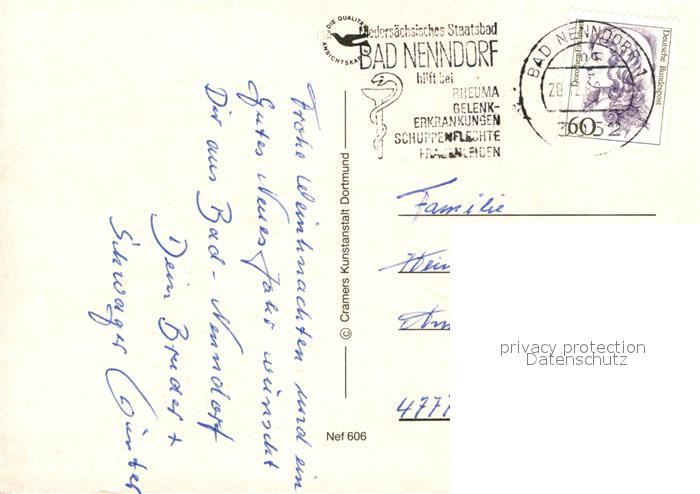 DIE QUALITÄTS
ANSICHTSKARTE
Niedersächsisches Staatsbad
BAD NENNDORF
hilft bei
RHEUMA
GELENK-
ERKRANKUNGEN
SCHUPPENFLECHTE
FRAUENLEIDEN
BAD NENNDORF 1
3052
Deutsche Bundespost
60
Frohe Weihnachten und ein
Gutes Neues Jahr wünscht
Dir aus Bad-Nenndorf
Dein Bruder +
Schwager Günter
© Cramers Kunstanstalt Dortmund
Nef 606
Familie
privacy protection
Datenschutz